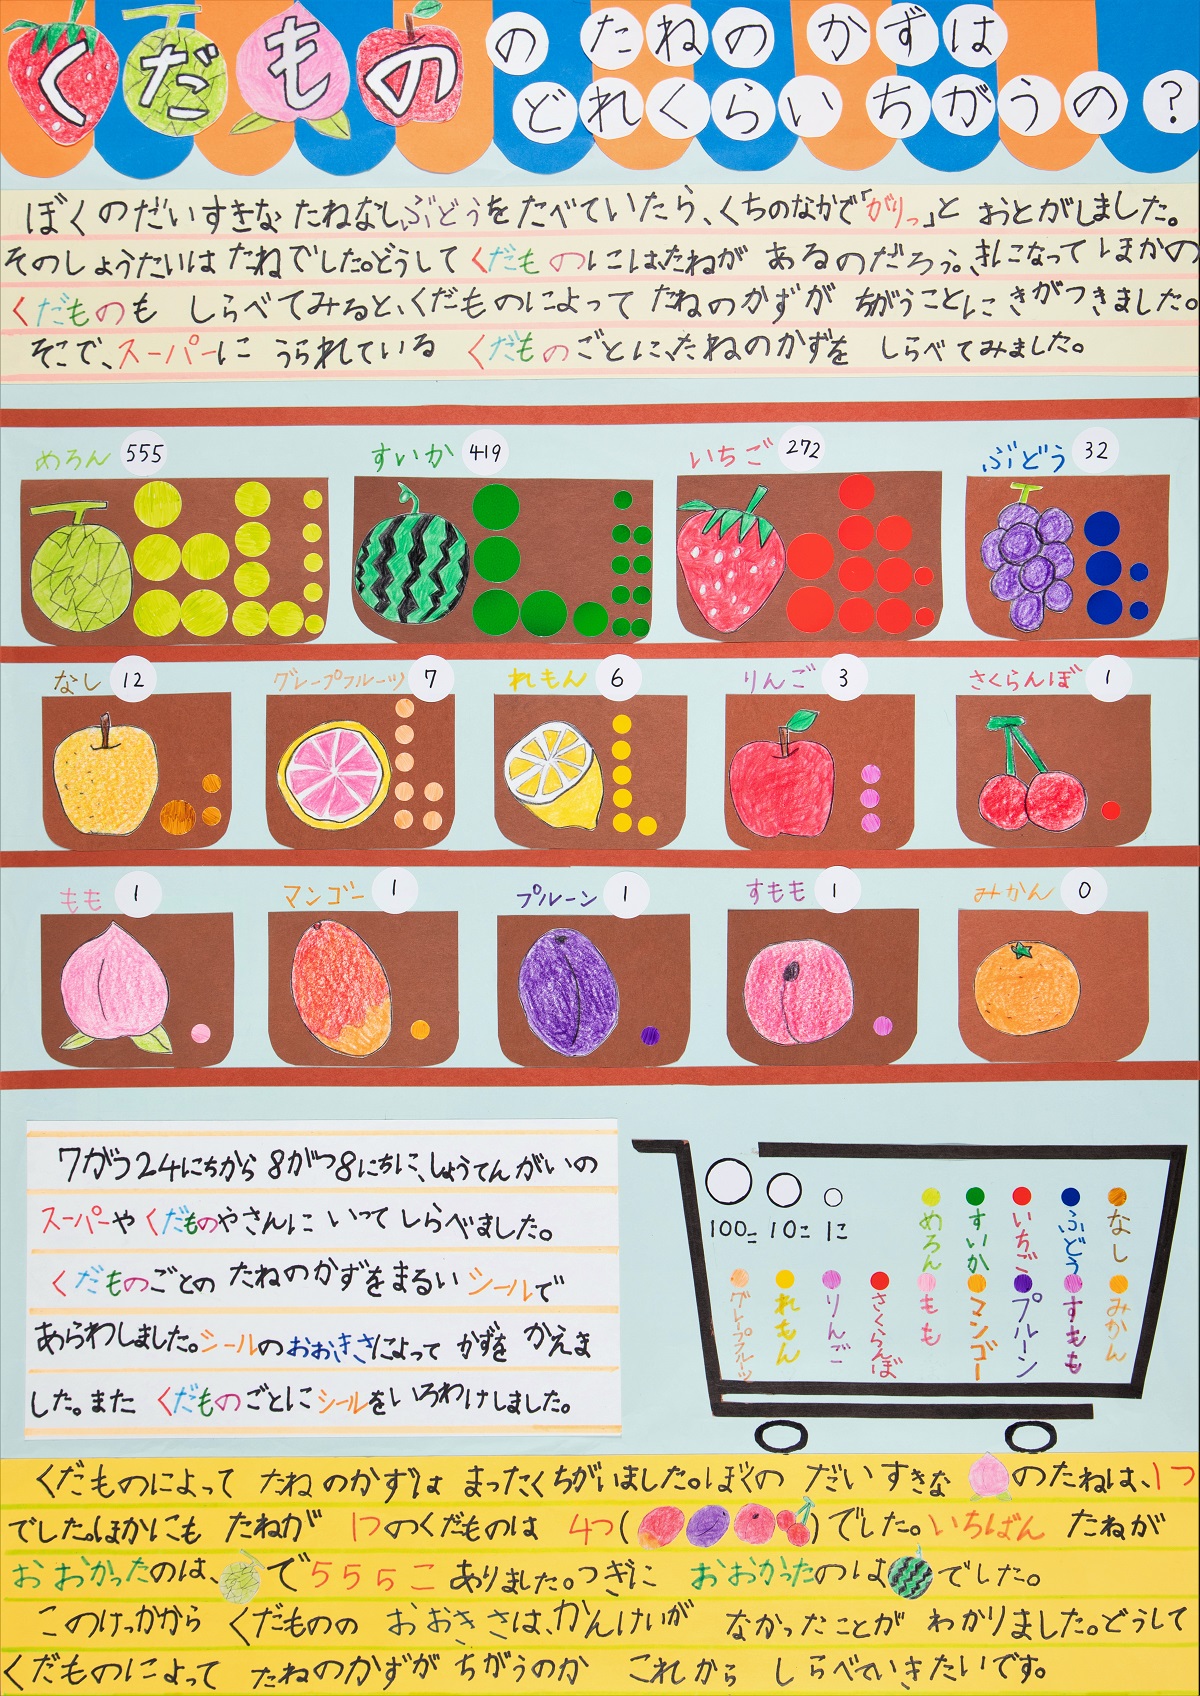 くだもの の たねの かずは
どれくらい ちがうの?
ぼくのだいすきな たねなしぶどうをたべていたら、くちのなかで「がりっ」と おとがしました。
そのしょうたいは たねでした。どうして くだものにには、たねが あるのだろう。きになって ほかの
くだものも しらべてみると、くだものによって たねのかずが ちがうことに きがつきました。
そこで、スーパーに うられている くだものごとに、たねのかずを しらべてみました。
めろん 555 すいか 419 いちご 272 ぶどう 32
なし 12 グレープフルーツ 7 れもん 6 りんご 3 さくらんぼ 1
もも 1 マンゴー 1 プルーン 1 すもも 1 みかん 0
7がつ24にちから 8がつ8にちに、しょうてんがいの
スーパーや くだものやさんに いって しらべました。
くだものごとの たねのかずを まるい シールで
あらわしました。シールの おおきさによって かずを かえま
した。また くだものごとに シールを いろわけしました。
100こ 10こ 1こ
めろん すいか いちご ぶどう なし
グレープフルーツ れもん りんご さくらんぼ もも マンゴー プルーン すもも みかん
くだものによって たねのかずは まったくちがいました。ぼくの だいすきな のたねは、1つ
でした。ほかにも たねが 1つのくだものは 4つ( )でした。いちばん たねが
おおかったのは、 で555こ ありました。つぎに おおかったのは でした。
このけっかから くだものの おおきさは、かんけいが なかったことが わかりました。どうして
くだものによって たねのかずが ちがうのか これから しらべていきたいです。